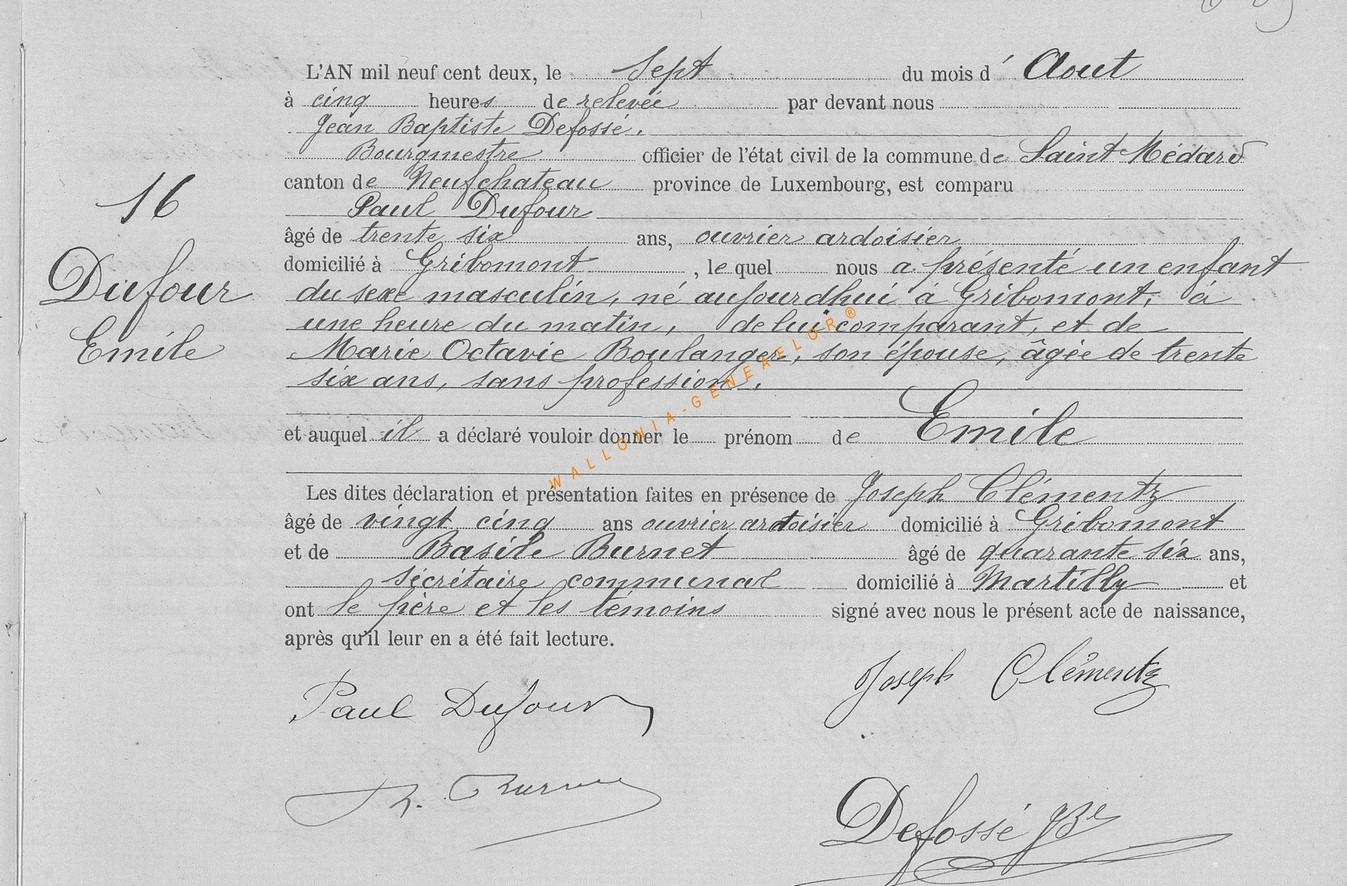 L'AN mil neuf cent deux, le Sept du mois d' Aout
à cinq heures de relevée par devant nous
Jean Baptiste Defossé.
Bourgmestre officier de l'état civil de la commune de Saint-Médard
canton de Neufchateau province de Luxembourg, est comparu
Paul Dufour
16
âgé de trente six ans, ouvrier ardoisier
Dufour
Emile
domicilié à Gribomont, lequel nous a présenté un enfant
du sexe masculin, né aujourdhui à Gribomont, à
une heure du matin, de lui comparant, et de
Marie Octavie Boulanger, son épouse, âgée de trente
six ans, sans profession.
et auquel il a déclaré vouloir donner le prénom de Emile
WALLONIA-GENEAELOR®
Les dites déclaration et présentation faites en présence de Joseph Clémentz
âgé de vingt cinq ans ouvrier ardoisier domicilié à Gribomont
et de Basile Burnet âgé de quarante six ans,
secrétaire communal domicilié à Martilly et
ont le père et les témoins signé avec nous le présent acte de naissance,
après qu'il leur en a été fait lecture.
Joseph Clémentz
Paul Dufour
Defossé JBte